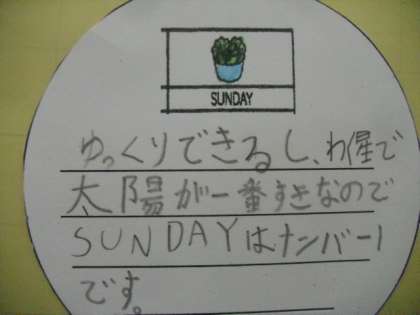 SUNDAY
ゆっくりできるし、わく星で
太陽が一番すきなので
SUNDAYはナンバー1
です。